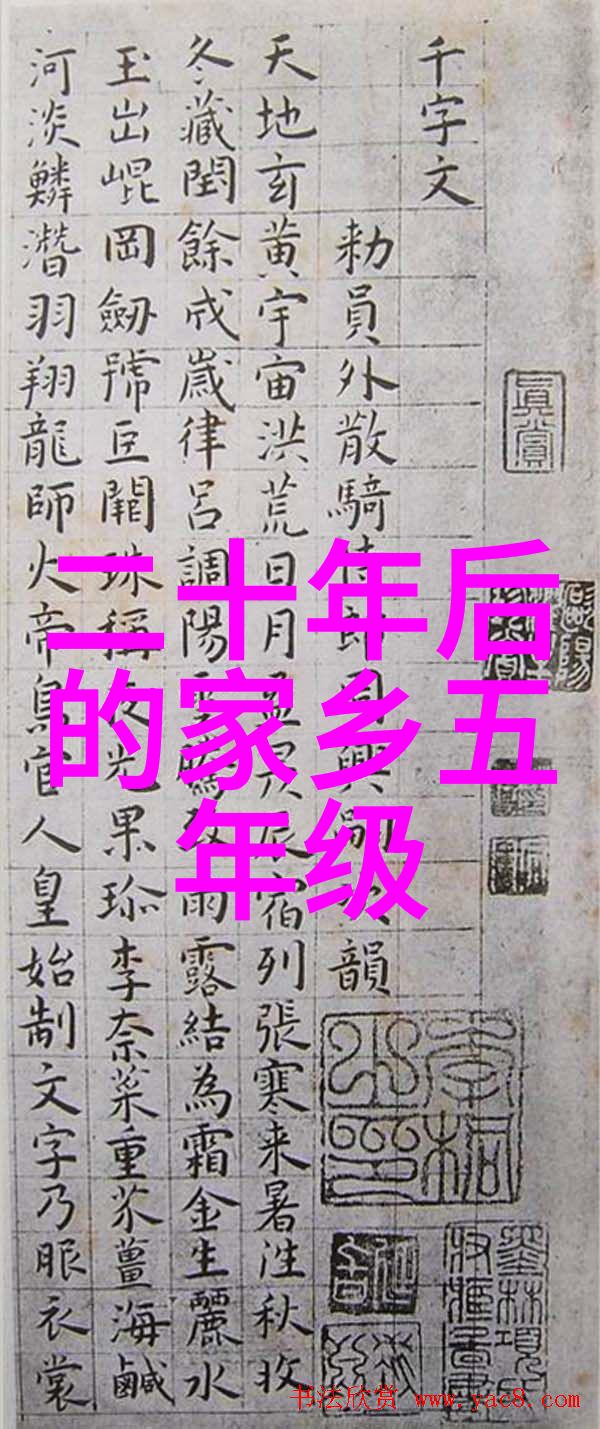 千字文
勑員外散騎侍郎周興嗣次韻
天地玄黃宇宙洪荒日月盈昃辰宿列張寒来暑往秋收
冬藏閏餘成歲律呂調陽雲騰致雨露結為霜金生麗水
玉出崐岡劒號巨闕珠稱夜光果珎李柰菜重芥薑海鹹
河淡鱗潛羽翔龍師火帝鳥官人皇始制文字乃服衣裳
二十年后
的家乡五
年级
真賞
书法欣赏 www.yac8.com